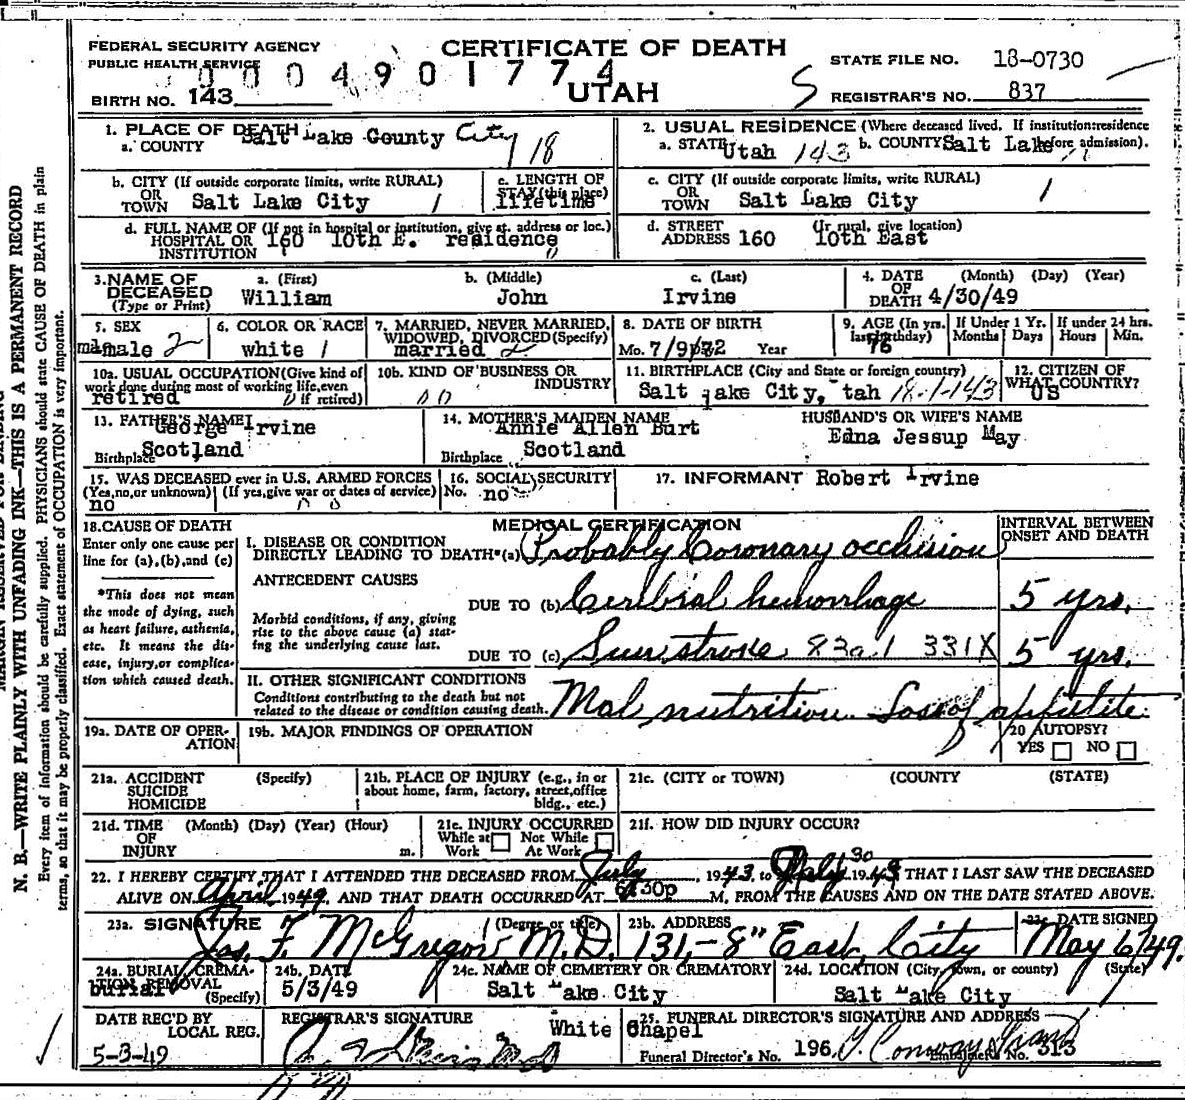 FEDERAL SECURITY AGENCY
PUBLIC HEALTH SERVICE
CERTIFICATE OF DEATH
UTAH
0004901774
BIRTH NO. 143
STATE FILE NO. 18-0730
REGISTRAR'S NO. 837
N. B.—WRITE PLAINLY WITH UNFADING INK—THIS IS A PERMANENT RECORD
Every item of information should be carefully supplied. PHYSICIANS should state CAUSE OF DEATH in plain
terms, so that it may be properly classified. Exact statement of OCCUPATION is very important.
1. PLACE OF DEATH
a. COUNTY Salt Lake County City 18
2. USUAL RESIDENCE (Where deceased lived. If institution:residence before admission).
a. STATE Utah 143 b. COUNTY Salt Lake
b. CITY (If outside corporate limits, write RURAL)
OR
TOWN Salt Lake City 1
c. LENGTH OF
STAY (this place)
lifetime
c. CITY (If outside corporate limits, write RURAL)
OR
TOWN Salt Lake City 1
d. FULL NAME OF (If not in hospital or institution, give st. address or loc.)
HOSPITAL OR
INSTITUTION 160 10th E. residence
d. STREET (If rural, give location)
ADDRESS 160 10th East
3. NAME OF
DECEASED
(Type or Print)
a. (First) b. (Middle) c. (Last)
William John Irvine
4. DATE (Month) (Day) (Year)
OF
DEATH 4/30/49
5. SEX
male 2
6. COLOR OR RACE
white 1
7. MARRIED, NEVER MARRIED,
WIDOWED, DIVORCED (Specify)
married 2
8. DATE OF BIRTH
Mo. 7/9/72 Year
9. AGE (In yrs.
last birthday)
76
If Under 1 Yr.
Months Days
If under 24 hrs.
Hours Min.
10a. USUAL OCCUPATION (Give kind of
work done during most of working life, even
if retired)
retired
10b. KIND OF BUSINESS OR
INDUSTRY
11. BIRTHPLACE (City and State or foreign country)
Salt Lake City, tah 18-1-143
12. CITIZEN OF
WHAT COUNTRY?
US
13. FATHER'S NAME
George Irvine
Birthplace Scotland
14. MOTHER'S MAIDEN NAME
Annie Allen Burt
Birthplace Scotland
HUSBAND'S OR WIFE'S NAME
Edna Jessup May
15. WAS DECEASED ever in U.S. ARMED FORCES
(Yes,no,or unknown) (If yes,give war or dates of service)
no
16. SOCIAL SECURITY
No. no
17. INFORMANT Robert Irvine
18. CAUSE OF DEATH
Enter only one cause per
line for (a),(b),and (c)
*This does not mean
the mode of dying, such
as heart failure, asthenia,
etc. It means the dis-
ease, injury,or complica-
tion which caused death.
MEDICAL CERTIFICATION
INTERVAL BETWEEN
ONSET AND DEATH
I. DISEASE OR CONDITION
DIRECTLY LEADING TO DEATH*(a) Probably Coronary occlusion
ANTECEDENT CAUSES
DUE TO (b) Cerebral hemorrhage 5 yrs.
Morbid conditions, if any, giving
rise to the above cause (a) stat-
ing the underlying cause last.
DUE TO (c) Sun stroke 83a1 331X 5 yrs.
II. OTHER SIGNIFICANT CONDITIONS
Conditions contributing to the death but not
related to the disease or condition causing death.
Mal nutrition Loss of appetite
19a. DATE OF OPER-
ATION
19b. MAJOR FINDINGS OF OPERATION
20 AUTOPSY?
YES NO
21a. ACCIDENT (Specify)
SUICIDE
HOMICIDE
21b. PLACE OF INJURY (e.g., in or
about home, farm, factory, street,office
bldg., etc.)
21c. (CITY or TOWN) (COUNTY) (STATE)
21d. TIME (Month) (Day) (Year) (Hour)
OF
INJURY m.
21e. INJURY OCCURRED
While at Work Not While At Work
21f. HOW DID INJURY OCCUR?
22. I HEREBY CERTIFY THAT I ATTENDED THE DECEASED FROM July, 1943, to April 30 1949 THAT I LAST SAW THE DECEASED
ALIVE ON April 1949, AND THAT DEATH OCCURRED AT 6:30p M, FROM THE CAUSES AND ON THE DATE STATED ABOVE.
23a. SIGNATURE (Degree or title)
Jas. F. McGregor M.D.
23b. ADDRESS
131-8" East, City
23c. DATE SIGNED
May 6/49.
24a. BURIAL, CREMA-
TION, REMOVAL
(Specify)
burial
24b. DATE
5/3/49
24c. NAME OF CEMETERY OR CREMATORY
Salt Lake City
24d. LOCATION (City, town, or county) (State)
Salt Lake City
DATE REC'D BY
LOCAL REG.
5-3-49
REGISTRAR'S SIGNATURE
25. FUNERAL DIRECTOR'S SIGNATURE AND ADDRESS
White Chapel
Funeral Director's No. 196 Embalmer's No. 313